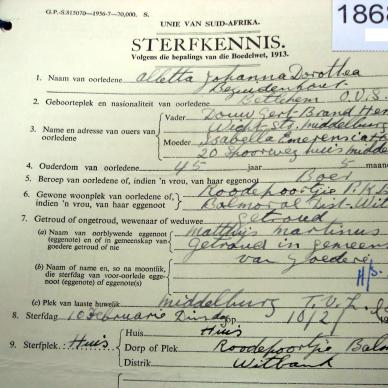 G.P.-S.815070—1956-7—70,000. S.
1868
UNIE VAN SUID-AFRIKA.
STERFKENNIS.
Volgens die bepalings van die Boedelwet, 1913.
1. Naam van oorledene Alletta Johanna Dorothea
Bezuidenhout
2. Geboorteplek en nasionaliteit van oorledene Bethlehem O.V.S.
3. Naam en adres van ouers van oorledene
Vader Douw Gert Brand
Middelburg
Moeder Isabella
20 Spoorweg huis
4. Ouderdom van oorledene 45 jaar 5 maande
5. Beroep van oorledene of, indien 'n vrou, van haar eggenoot Boer
6. Gewone woonplek van oorledene of, indien 'n vrou, van haar eggenoot Roodepoortjie P.K.
Balmoral Dist. Wit
7. Getroud of ongetroud, wewenaar of weduwee getroud
(a) Naam van oorblywende eggenoot (eggenote) en of in gemeenskap van goedere getroud of nie
Matthys Martinus
Getroud in gemeen
van goedere
H/S.
(b) Naam of name en, so na moontlik, die sterfdag van voor-oorlede eggenoot (eggenote) of eggenote(s)
(c) Plek van laaste huwelik Middelburg T.V.L.
8. Sterfdag 10 Februarie Dinsdag op 10/2
9. Sterfplek: Huis
Huis Huis
Dorp of Plek Roodepoortjie Bal
Distrik Witbank